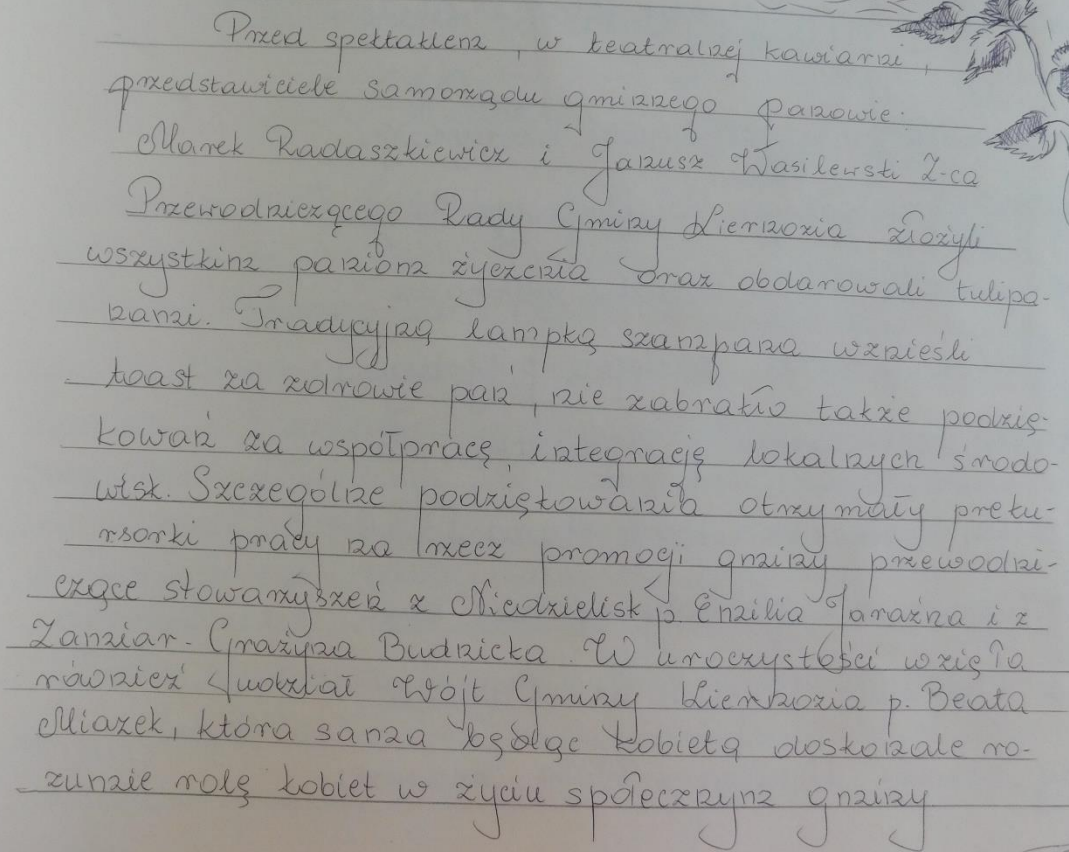 Przed spektaklem, w teatralnej kawiarni,
przedstawiciele samorządu gminnego panowie:
Marek Radaszkiewicz i Janusz Wasilewski Z-ca
Przewodniczącego Rady Gminy Nierzozia złożyli
wszystkim paniom życzenia oraz obdarowali tulipa-
nami. Tradycyjną lampką szampana wznieśli
toast za zdrowie pań, nie zabrakło także podzię-
kowań za współpracę, integrację lokalnych środo-
wisk. Szczególne podziękowania otrzymały preku-
rsorki pracy na rzecz promocji gminy przewodni-
czące stowarzyszeń z Niedzielisk p. Emilia Jaraźna i z
Zamiar - Grażyna Budnicka. W uroczystości wzięła
również udział Wójt Gminy p. Beata
Miazek, która sama będąc kobietą doskonale ro-
zumie rolę kobiet w życiu społecznym gminy